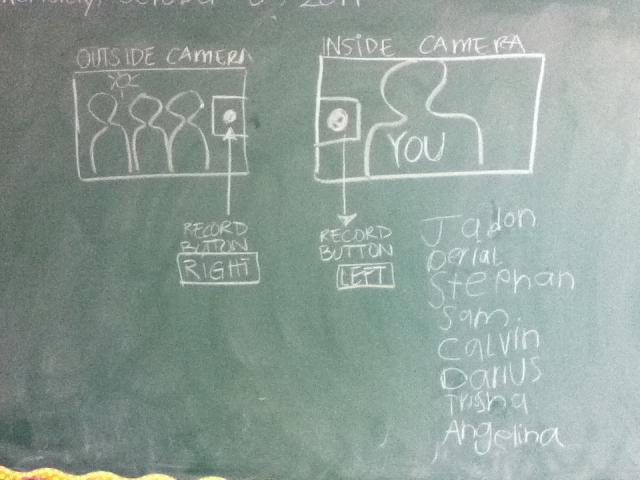 OUTSIDE CAMERA
INSIDE CAMERA
YOU
RECORD
BUTTON
RIGHT
RECORD
BUTTON
LEFT
Jadon
Derial
Stephan
Sam.
Calvin
Darius
Trisha
Angelina